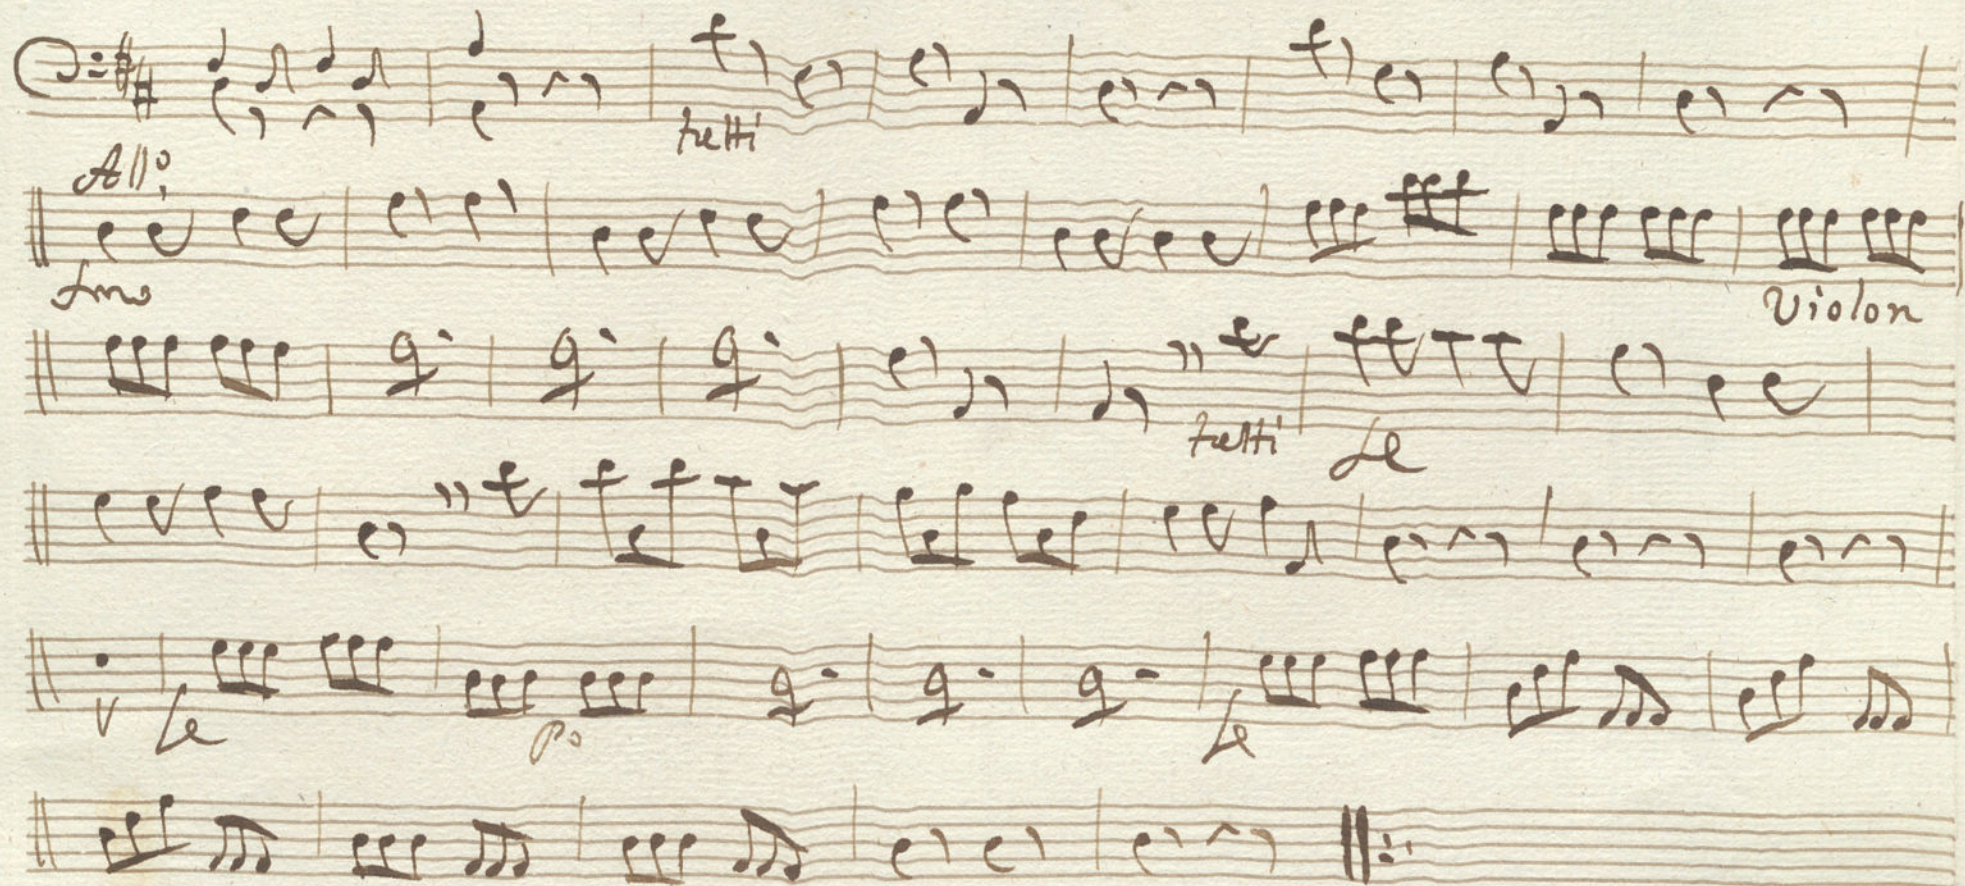 tutti
All:o
fmo
Violon
tutti fe
V fe Po fe